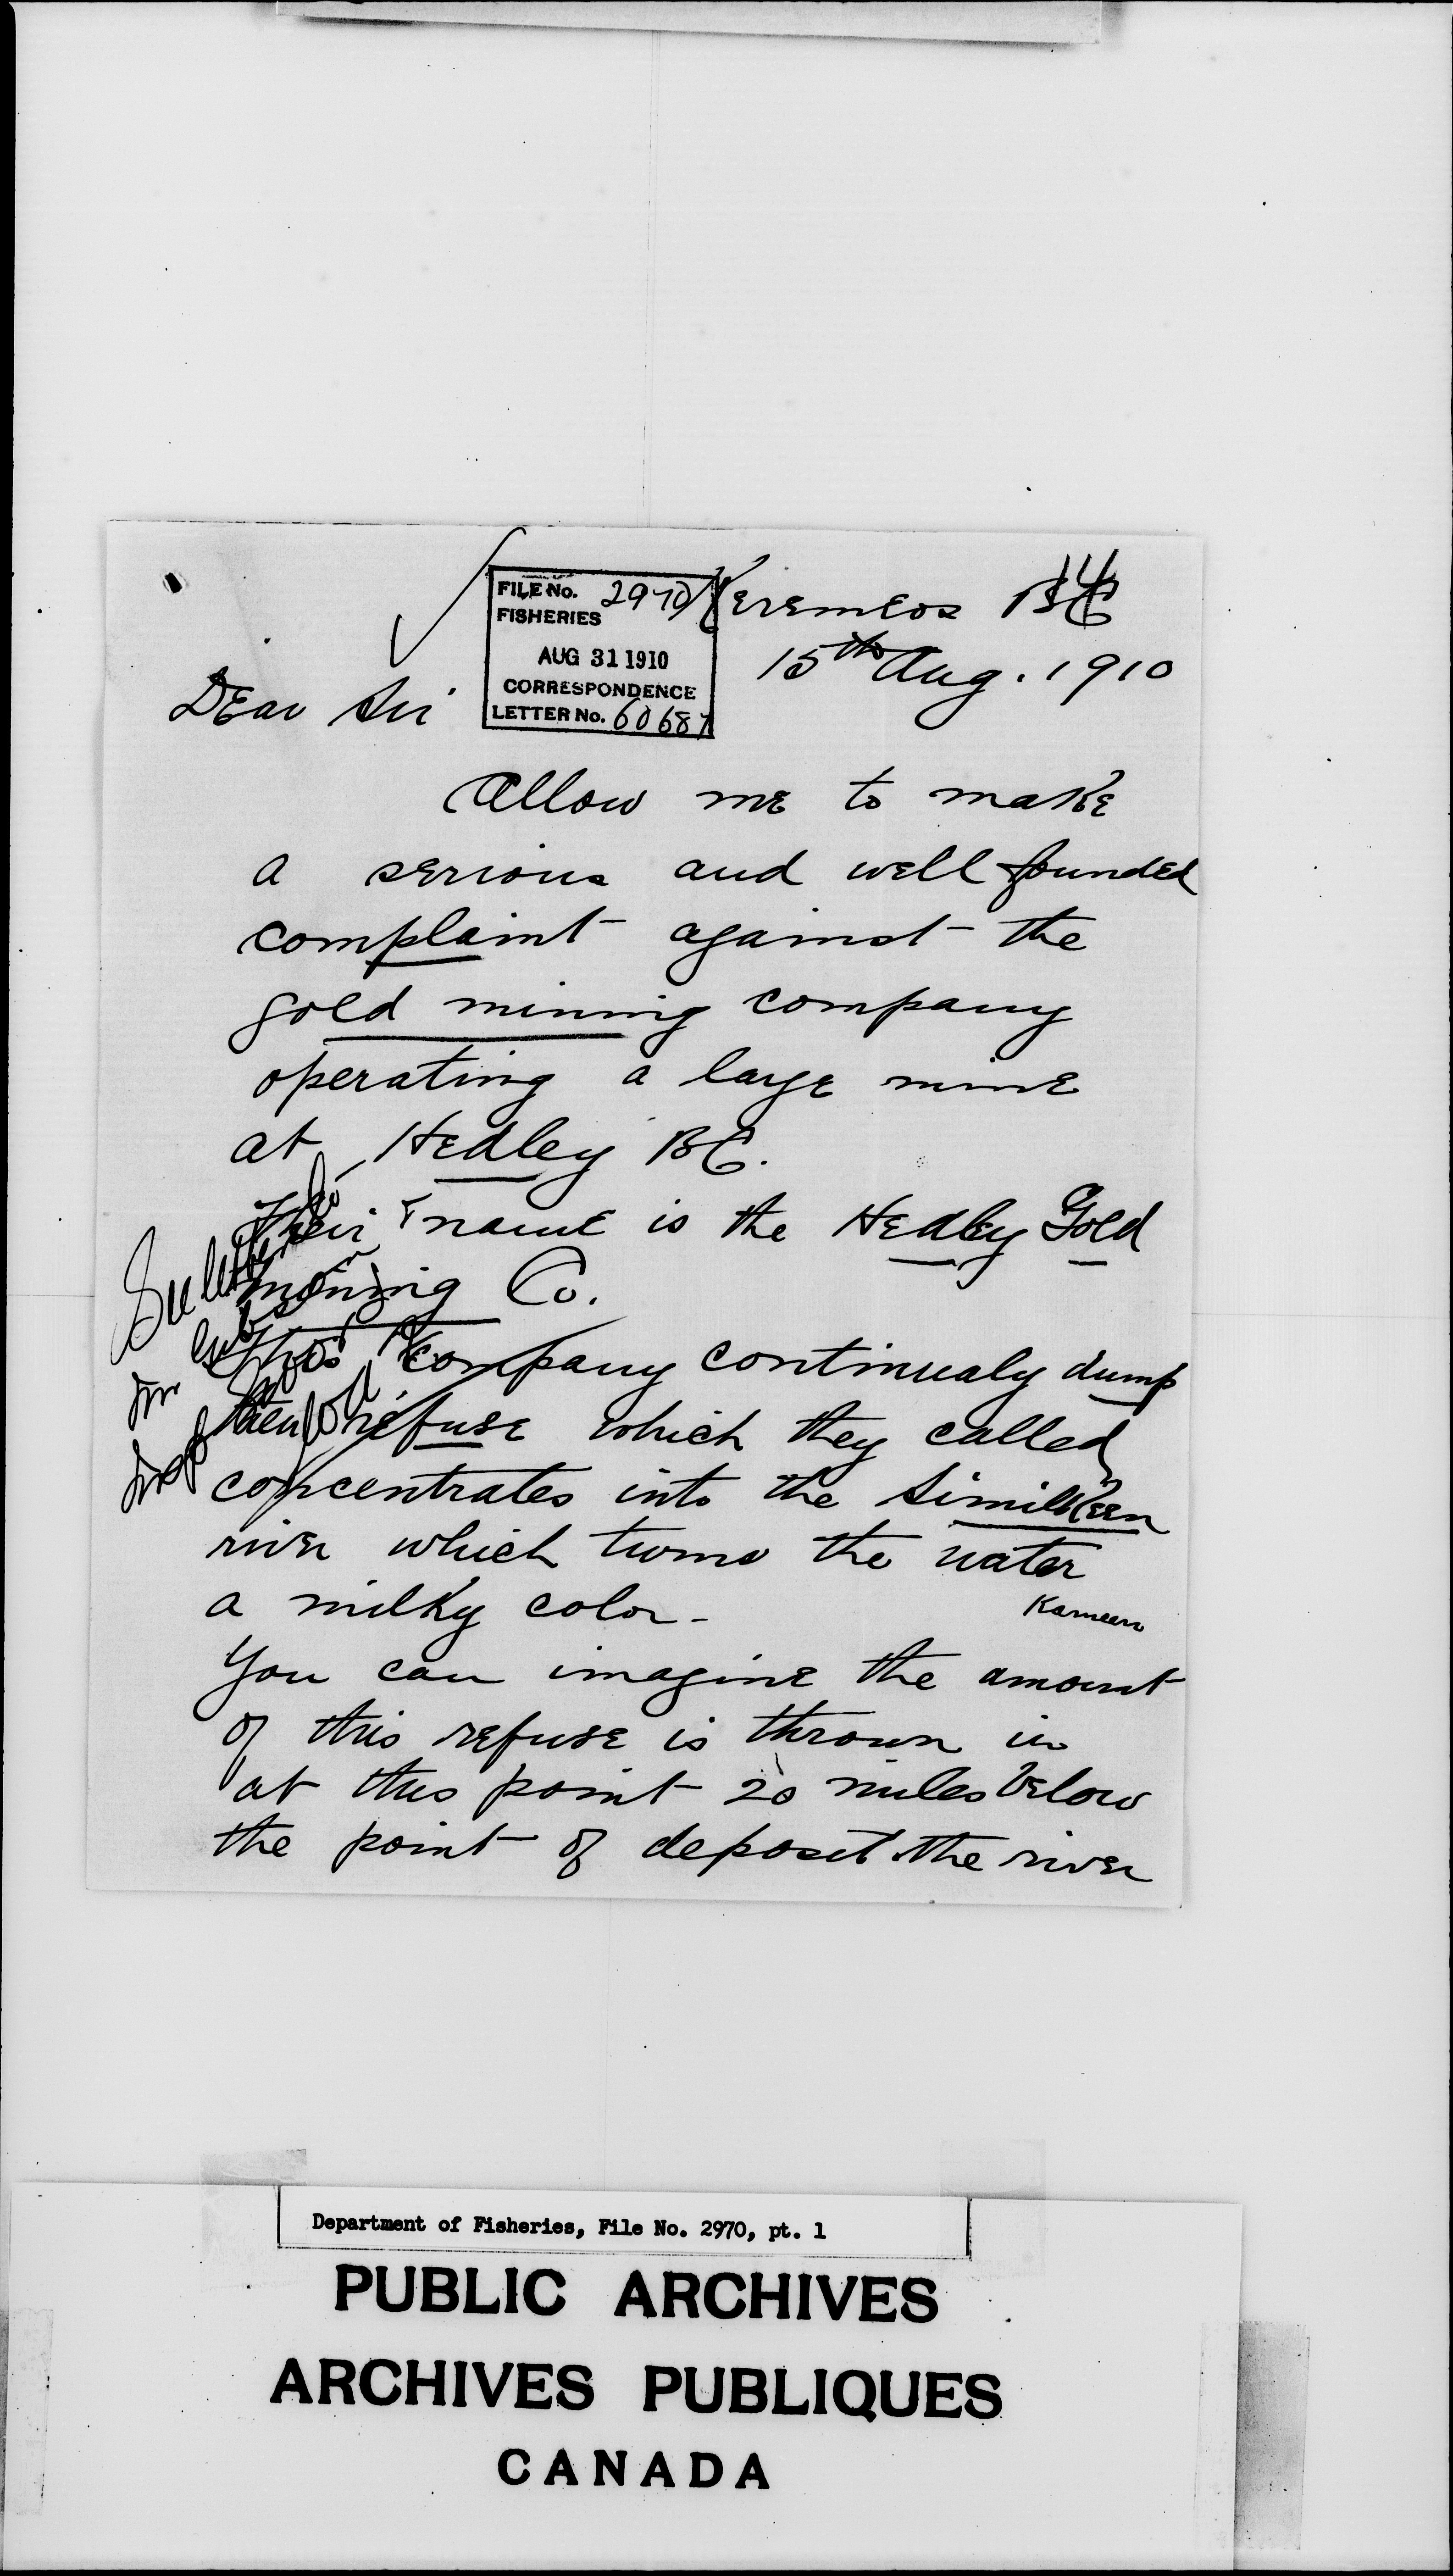 14
Keremeos BC
FILE No. 2970
FISHERIES
AUG 31 1910
CORRESPONDENCE
LETTER No. 60687
15th Aug. 1910
Dear Sir
Allow me to make
a serious and well founded
complaint against the
gold mining company
operating a large mine
at Hedley BC.
Their name is the Hedley Gold
mining Co.
This Company continualy dump
their refuse which they called
concentrates into the Similkeen
river which turns the water
a milky color -
Kameen
You can imagine the amount
of this refuse is thrown in
at this point 20 miles below
the point of deposit the river
See letter to
on
Department of Fisheries, File No. 2970, pt. 1
PUBLIC ARCHIVES
ARCHIVES PUBLIQUES
CANADA